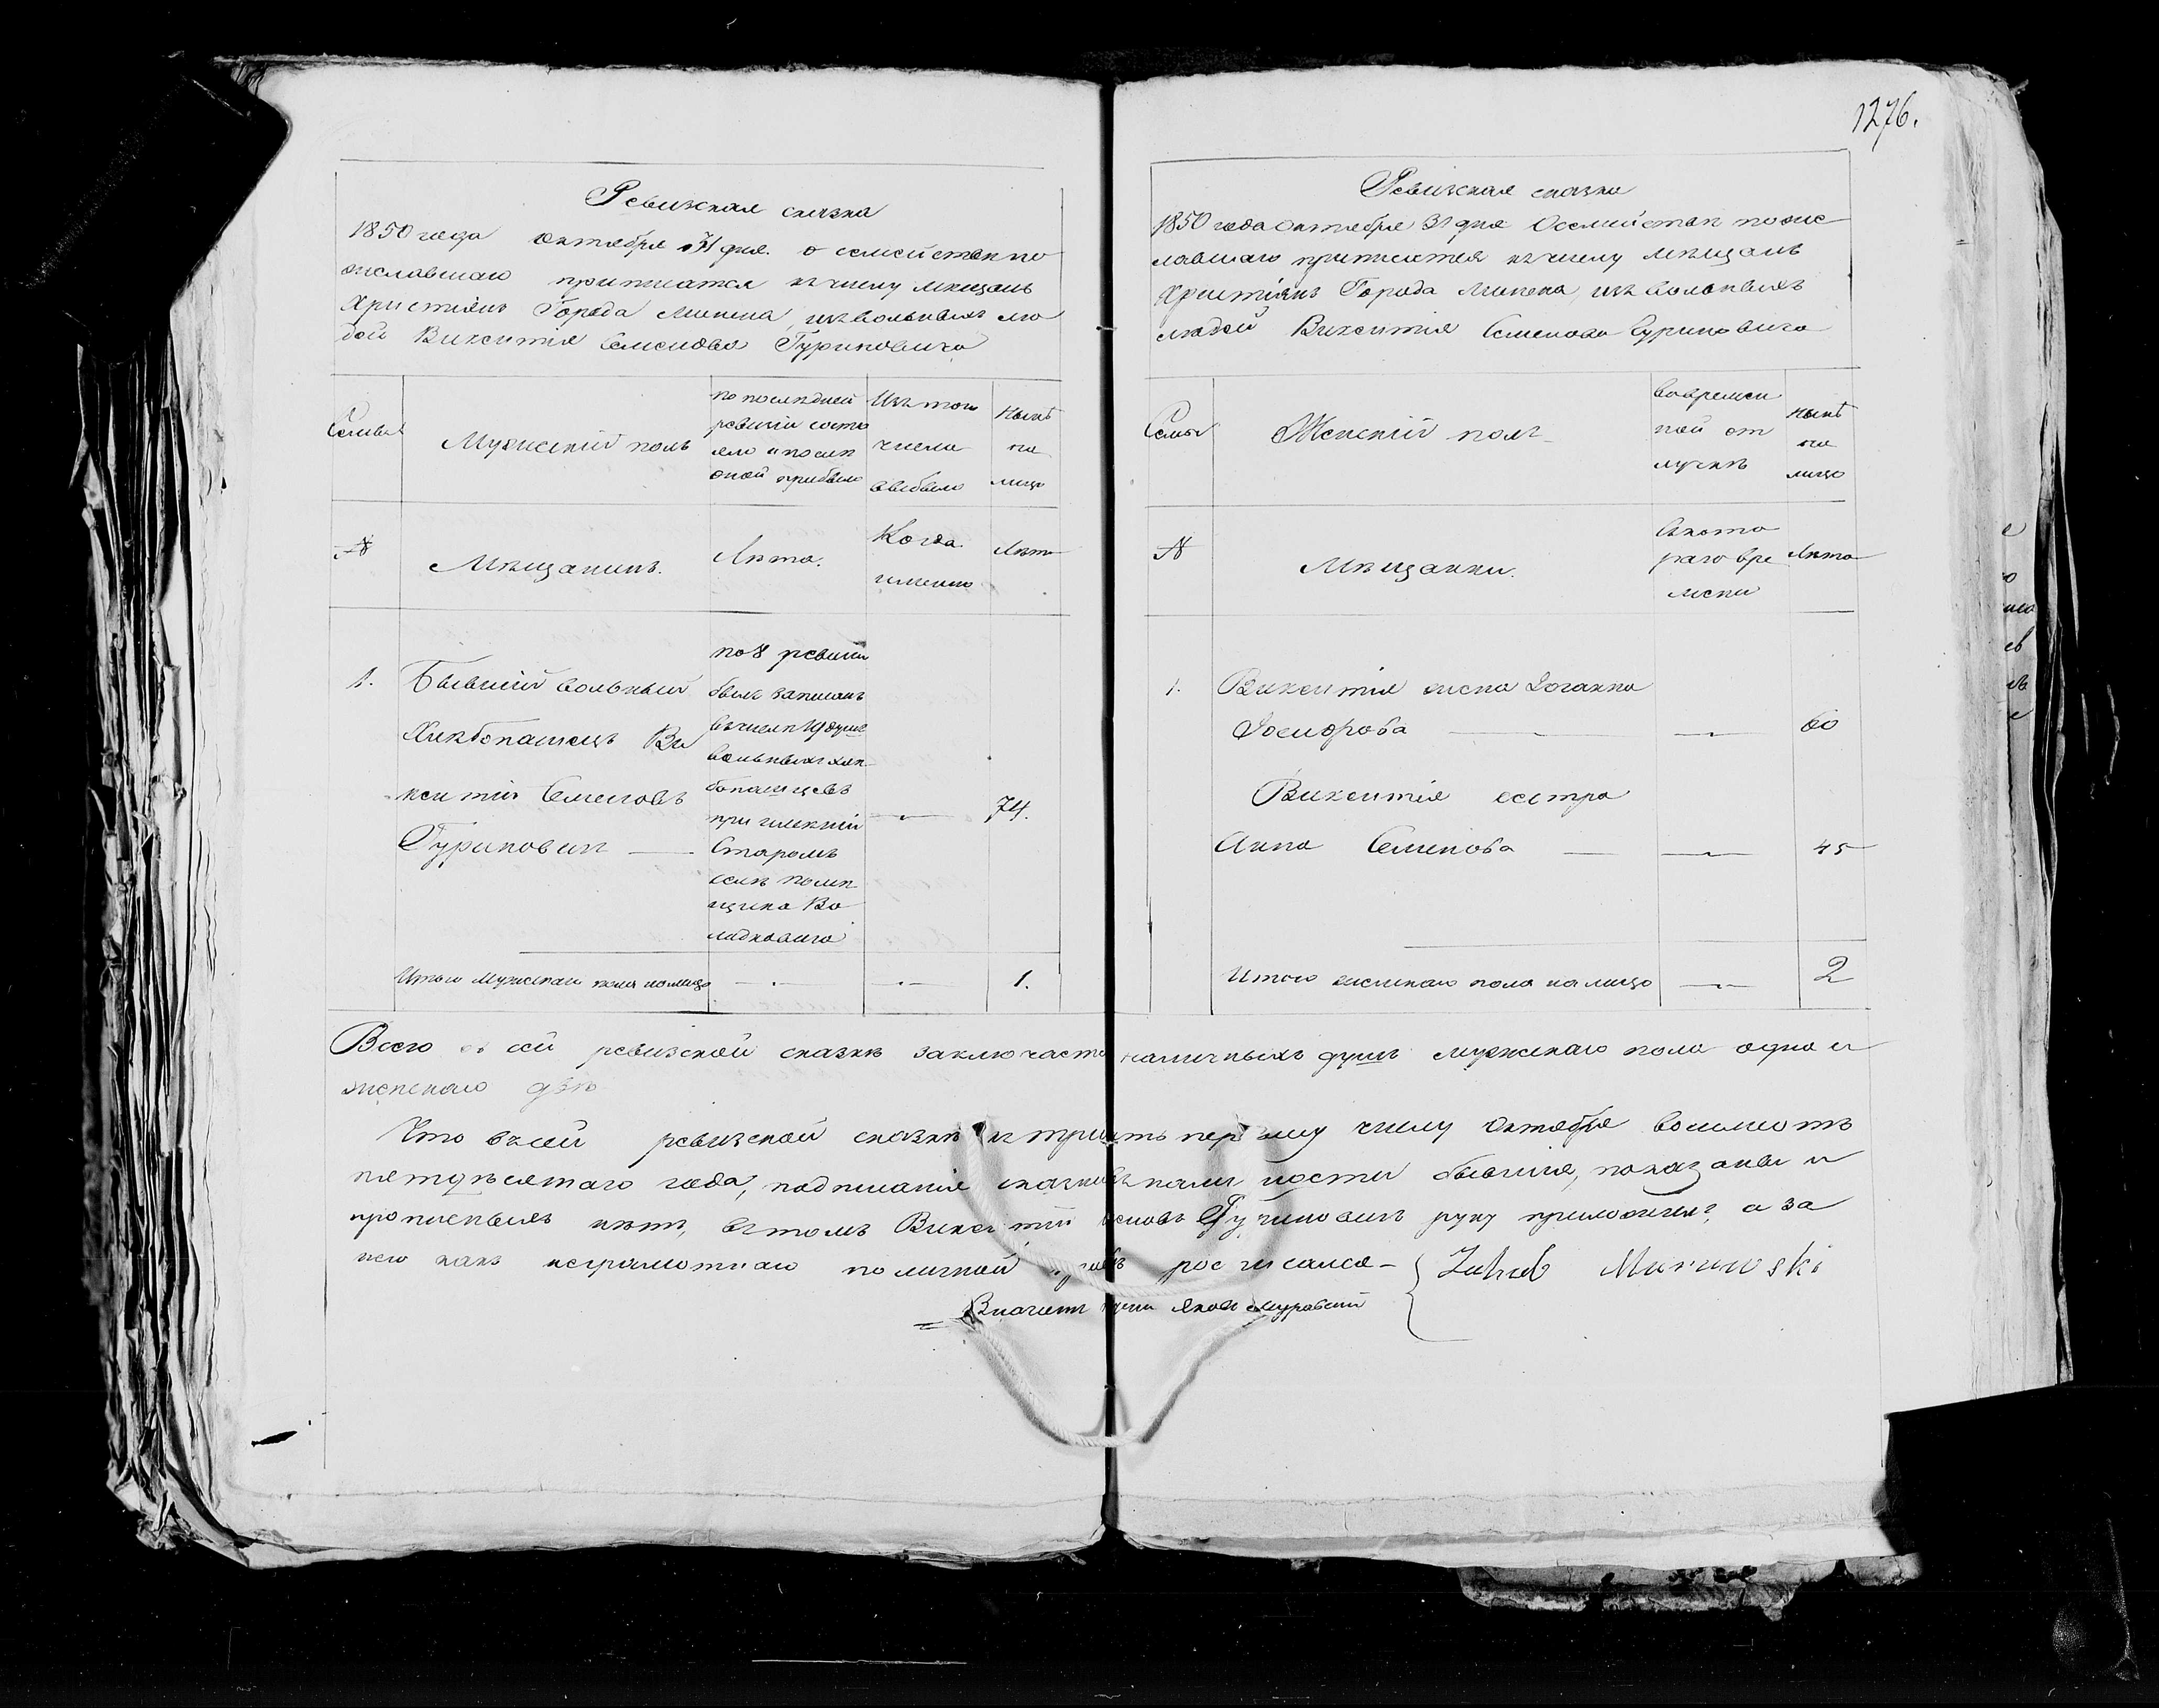 1276.
Ревизская сказка
1850 года октября 31 дня. о семействе по
желавшаго приписатся къ числу мещанъ
Християнъ Города Минска, изъ вольныхъ лю
дей Викентия Семенова Гуриновича
Семьи
Мужеский полъ
по последней
ревизии состо
яло и после
оной прибыло
Изъ того
числа
выбыло
Ныне
на
лицо
№
Мещанинъ.
Лета.
Когда
именно
Лета
1.
Бывший вольный
Хлебопашецъ Ви
кентий Семеновъ
Гуриновичъ
по 8 ревизии
былъ записанъ
въ числе 19 душъ
вольныхъ хле
бопашцевъ
при имении
Старомъ
селе поме
щика Во
лодковича
74.
Итого мужскаго пола налицо
1.
Ревизская сказка
1850 года октября 31 дня О семействе поже
лавшаго приписатся къ числу мещанъ
Христіянъ Города Минска, изъ вольныхъ
людей Викентия Семенова Гуриновича
Семьи
Женский полъ
Во времен
ной от
лучке
Ныне
на
лицо
№
Мещанки.
Съ кото
раго вре
мени
Лета
1.
Викентия жена Іоганна
Іосифова
60
Викентия сестра
Анна Семенова
45
Итого женскаго пола на лицо
2
Всего въ сей ревизской сказке заключается наличныхъ душъ мужскаго пола одна и
женскаго две
Что въ сей ревизской сказке къ тридцать первому числу Октября восемсотъ
пятдесятаго года, подписания сказки въ наличности бывшия, показаны и
прописныхъ нетъ, въ томъ Викентий Гуриновичъ руку приложилъ, а за
него какъ неграмотнаго по личной прозбе росписался –
Jakub Murawski
Значитъ Яковъ Муравский